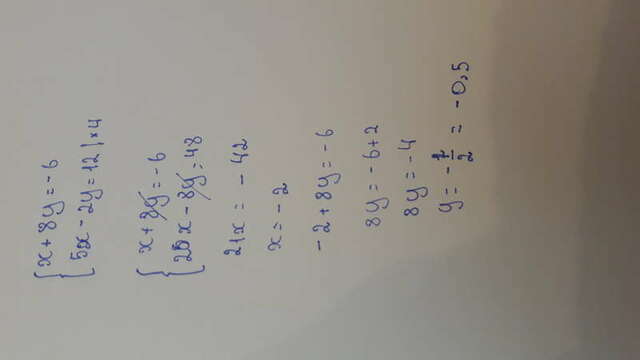 x + 8y = -6
5x - 2y = 12 | × 4
x + 8y = -6
20x - 8y = 48
21x = - 42
x = - 2
-2 + 8y = -6
8y = -6+2
8y = -4
y = - 1/2 = -0,5